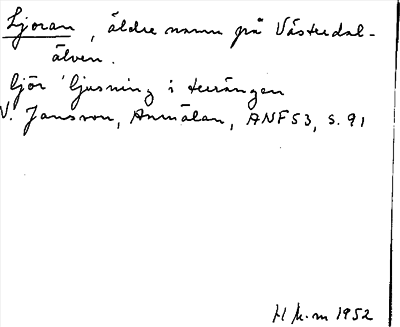 Ljoran, äldre namn på Västerdal-
älven.
ljör 'ljusning i terrängen
V. Jansson, Anmälan, ANF 53, s. 91
H K-m 1952